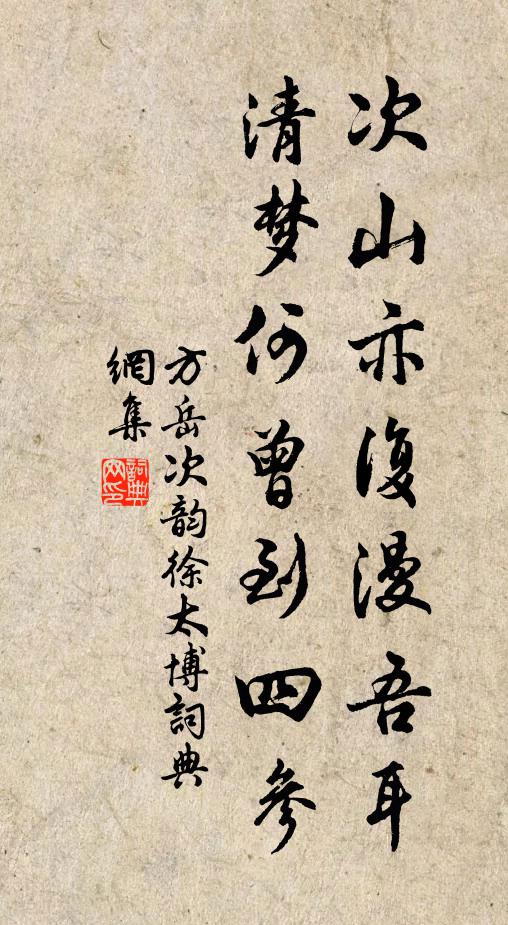 次山亦復漫吾耳
清梦何曾到四參
方岳次韵徐太博詞典
網集
詞典
网印